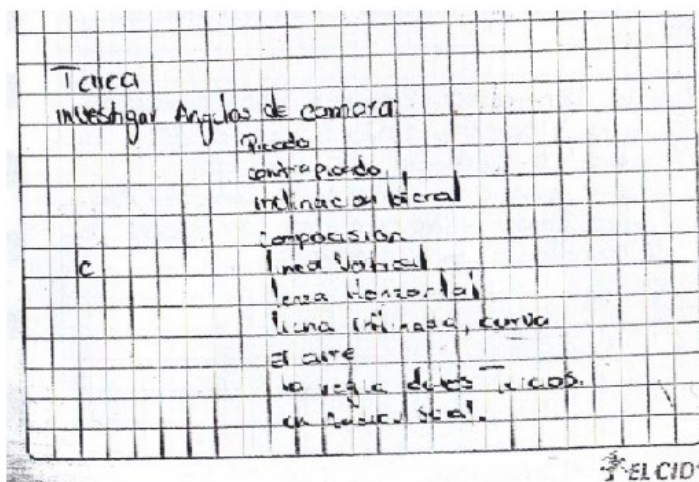 Tarea
investigar Angulos de camara:
Picado
contrapicado
inclinacion lateral
composision
C
linea Vertical
linea Horizontal
linea inclinada, curva
el aire
la regla de los Tercios.
EL CID